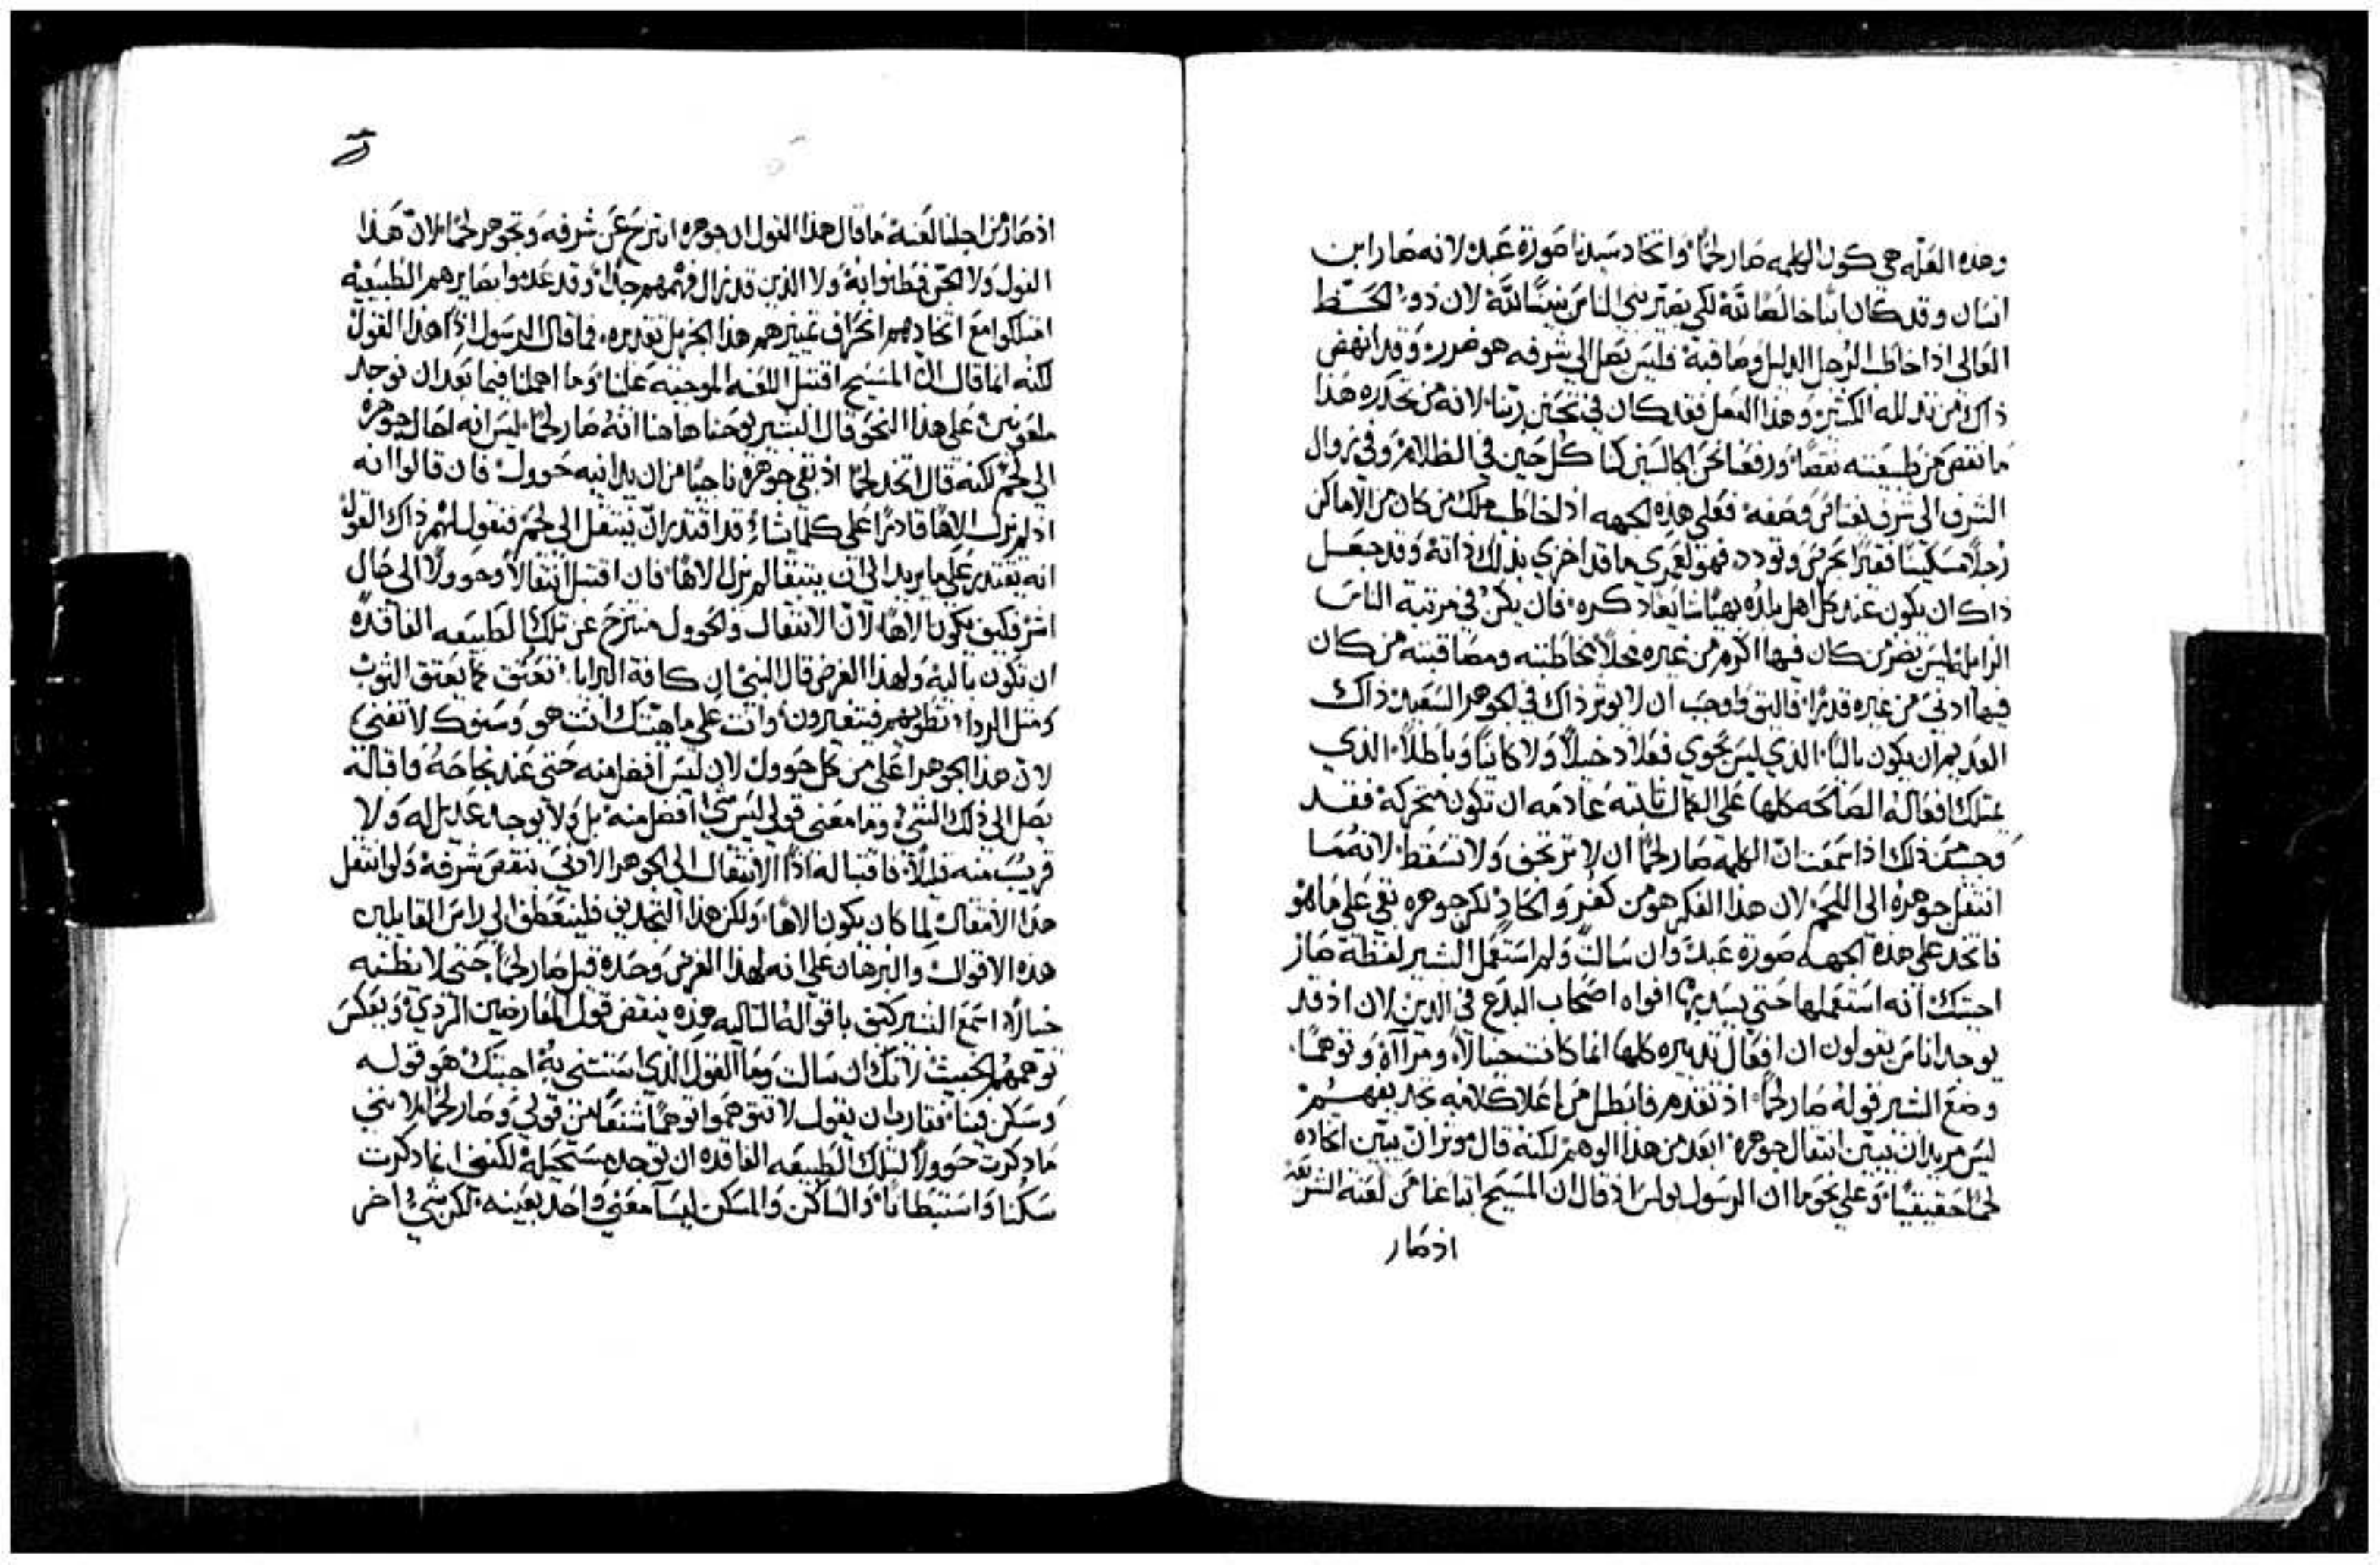 وهذه العله هي كون الكلمه صار لحمًا واتخاد سيدنا صورة عبد لانه صار ابن
انسان وقد كان ابنًا خالصًا لله لكي يصير بني الناس بنينًا لله لان ذو الحظ
العالي اذا خاطب الرجل الدليل وصاقبه فليس يصل الى شرفه هو ضرر وقد انهض
ذاك من تدلله الكثير وهذا الفعل فقد كان في تجين ربنا لانه من تحدره هذا
ما نقص من طبيعته نقصًا ورفعنا نحن الجالسين كنا كل حين في الظلام وفي زوال
الشرف الى شرف يفتاق وصفه فعلى هذه الجهه اذا خاطب ملك من كان من الاماكن
رجلاً مسكينًا فقيرًا بحرص وتودد فهو لعمري ما قد اخزي بذلك ذاته وقد جعل
ذاك ان يكون عند كل اهل بلده بهيًا شايعًا ذكره فان يكن في مرتبة الناس
الزايله ليس يضر من كان فيها اكرم من غيره محلاً مخاطبته ومصاقبته من كان
فيها ادنى من غيره قدرًا فاليق واوجب ان لا يوثر ذاك في الجوهر السعيد ذاك
العديم ان يكون باليًا الذي ليس يحوي فعلاً دخيلاً ولا كاينًا وباطلاً الذي
يمتلك افعاله الصالحه كلها على الكمال ثابته عادمه ان تكون متحركه فقد
وجب من ذلك اذا سمعت ان الكلمه صار لحمًا ان لا ترتجف ولا تسقط لانه ما
انتقل جوهره الى اللحم لان هذا الفكر هو من كفر والحاد لكن جوهره بقي على ما هو
فاتخد على هذه الجهه صورة عبد وان سالت ولم استعمل البشير لفظة صار
اجبتك انه استعملها حتى يسد بها افواه اصحاب البدع في الدين لان اذ قد
يوجد اناس يقولون ان افعال تدبيره كلها انما كانت خيالاً ومراآة وتوهمًا
وضع البشير قوله صار لحمًا اذ تقدم فابطل من اعلا كلامه تجديفهم
ليس مريدًا ان يبين انتقال جوهره ابعد من هذا الوهم لكنه قال موثرًا ان يبين اتخاده
لحمًا حقيقيًا وعلى نحو ما ان الرسول بولس اذ قال ان المسيح ابتاعنا من لعنة الشريعه
اذ صار
اذ صار من اجلنا لعنة ما قال هذا القول ان جوهره انتزح عن شرفه وتجوهر لحمًا لان هذا
القول ولا الجن فطنوا به ولا الذين قد زال فهمهم جدًا وقد عدموا بصايرهم الطبيعيه
امتلكوا مع اتخادهم انحراف تمييزهم هذا الجزيل تقديره فما قال الرسول اذًا هذا القول
لكنه انما قال ان المسيح اقتبل اللعنه الموجبه علينا وما اهملنا فيما بعد ان نوجد
ملعونين على هذا النحو قال البشير يوحنا هاهنا انه صار لحمًا ليس انه احال جوهره
الى لحم لكنه قال اتخد لحمًا اذ بقي جوهره ناجيًا من ان يدانيه حوول فان قالوا انه
اذ لم يزل الاهًا قادرًا على كلما شاء قد اقتدر ان ينتقل الى لحم فنقول لهم ذاك القول
انه يقتدر على ما يريد الى ان يبقا لم يزل الاهًا فان اقتبل انتقالاً وحوولاً الى حال
اشر فكيف يكون الاهًا لان الانتقال والحوول منتزح عن تلك الطبيعه الفاقده
ان تكون باليه ولهذا الغرض قال النبي ان كافة البرايا تعتق كما يعتق الثوب
ومثل الردا تطويهم فيتغيرون وانت على ماهيتك انت هو وسنوك لا تفنى
لان هذا الجوهر اعلى من كل حوول لان ليس افضل منه حتى عند نجاحه واقباله
يصل الى ذلك الشي وما معنى قولي ليس شي افضل منه بل ولا يوجد عديل له ولا
قريب منه قليلاً فاقتباله اذًا الانتقال الى الجوهر الادنى ينقص شرفه ولو انتقل
هذا الانتقال لما كان يكون الاهًا ولكن هذا التجديف فلينعطف الى راس القايلين
هذه الاقوال والبرهان على انه لهذا الغرض وحده قيل صار لحمًا حتى لا يظنه
خيالاً اسمع البشير كيف باقواله التاليه هذه ينقض قول المعارضين الردي ويعكس
توهمهم الخبيث لانك ان سالت وما القول الذي استثنى به اجبتك هو قوله
وسكن فينا فقارب ان يقول لا تتوهموا توهمًا شنعًا من قولي وصار لحمًا لانني
ما ذكرت حوولاً لتلك الطبيعه الفاقده ان توجد مستحيله لكنني انما ذكرت
سكنا واستبطانًا والساكن والمسكن ليسا معنى واحد بعينه لكن شي اخر